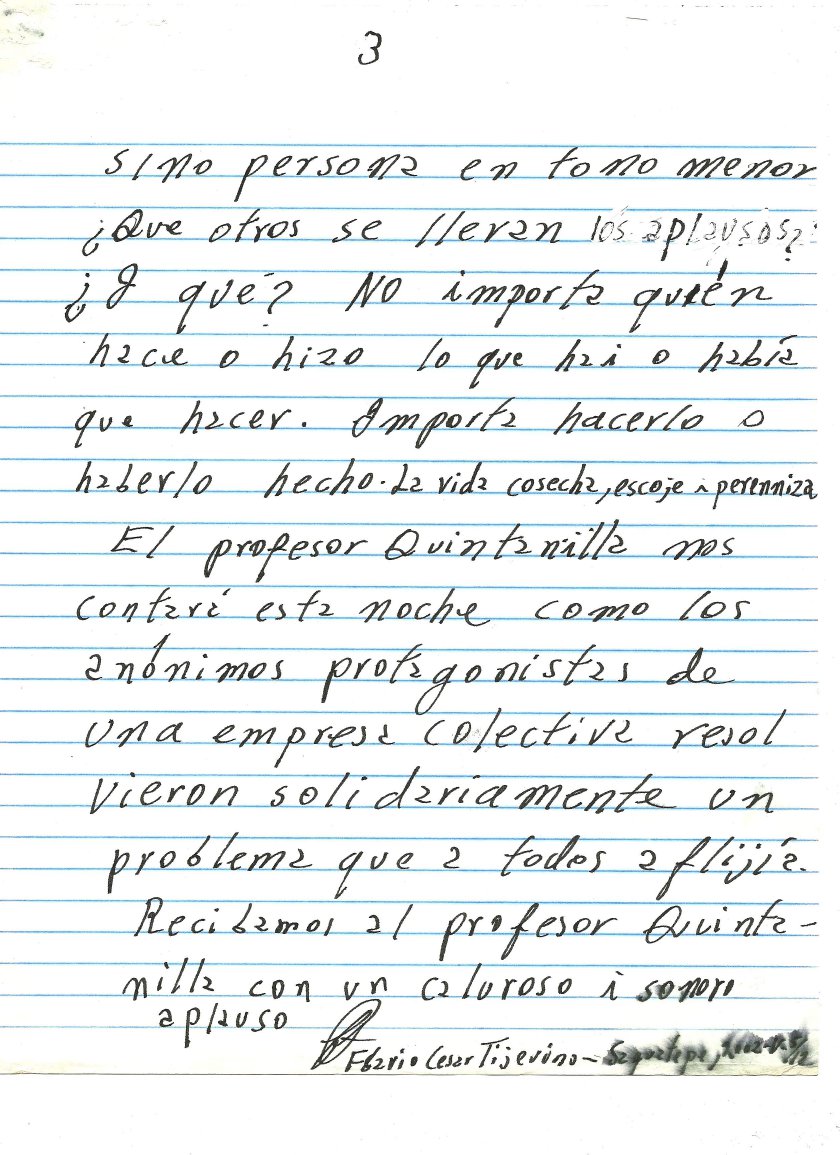 3
sino persona en tono menor
¿Que otros se llevan los aplausos?
¿I qué? NO importa quién
hace o hizo lo que hai o había
que hacer. Importa hacerlo o
haberlo hecho. La vida cosecha, escoje i perenniza
El profesor Quintanilla nos
contará esta noche como los
anónimos protagonistas de
una empresa colectiva resol
vieron solidariamente un
problema que a todos aflijía.
Recibamos al profesor Quinta-
nilla con un caluroso i sonoro
aplauso
Flavio Cesar Tijerino -